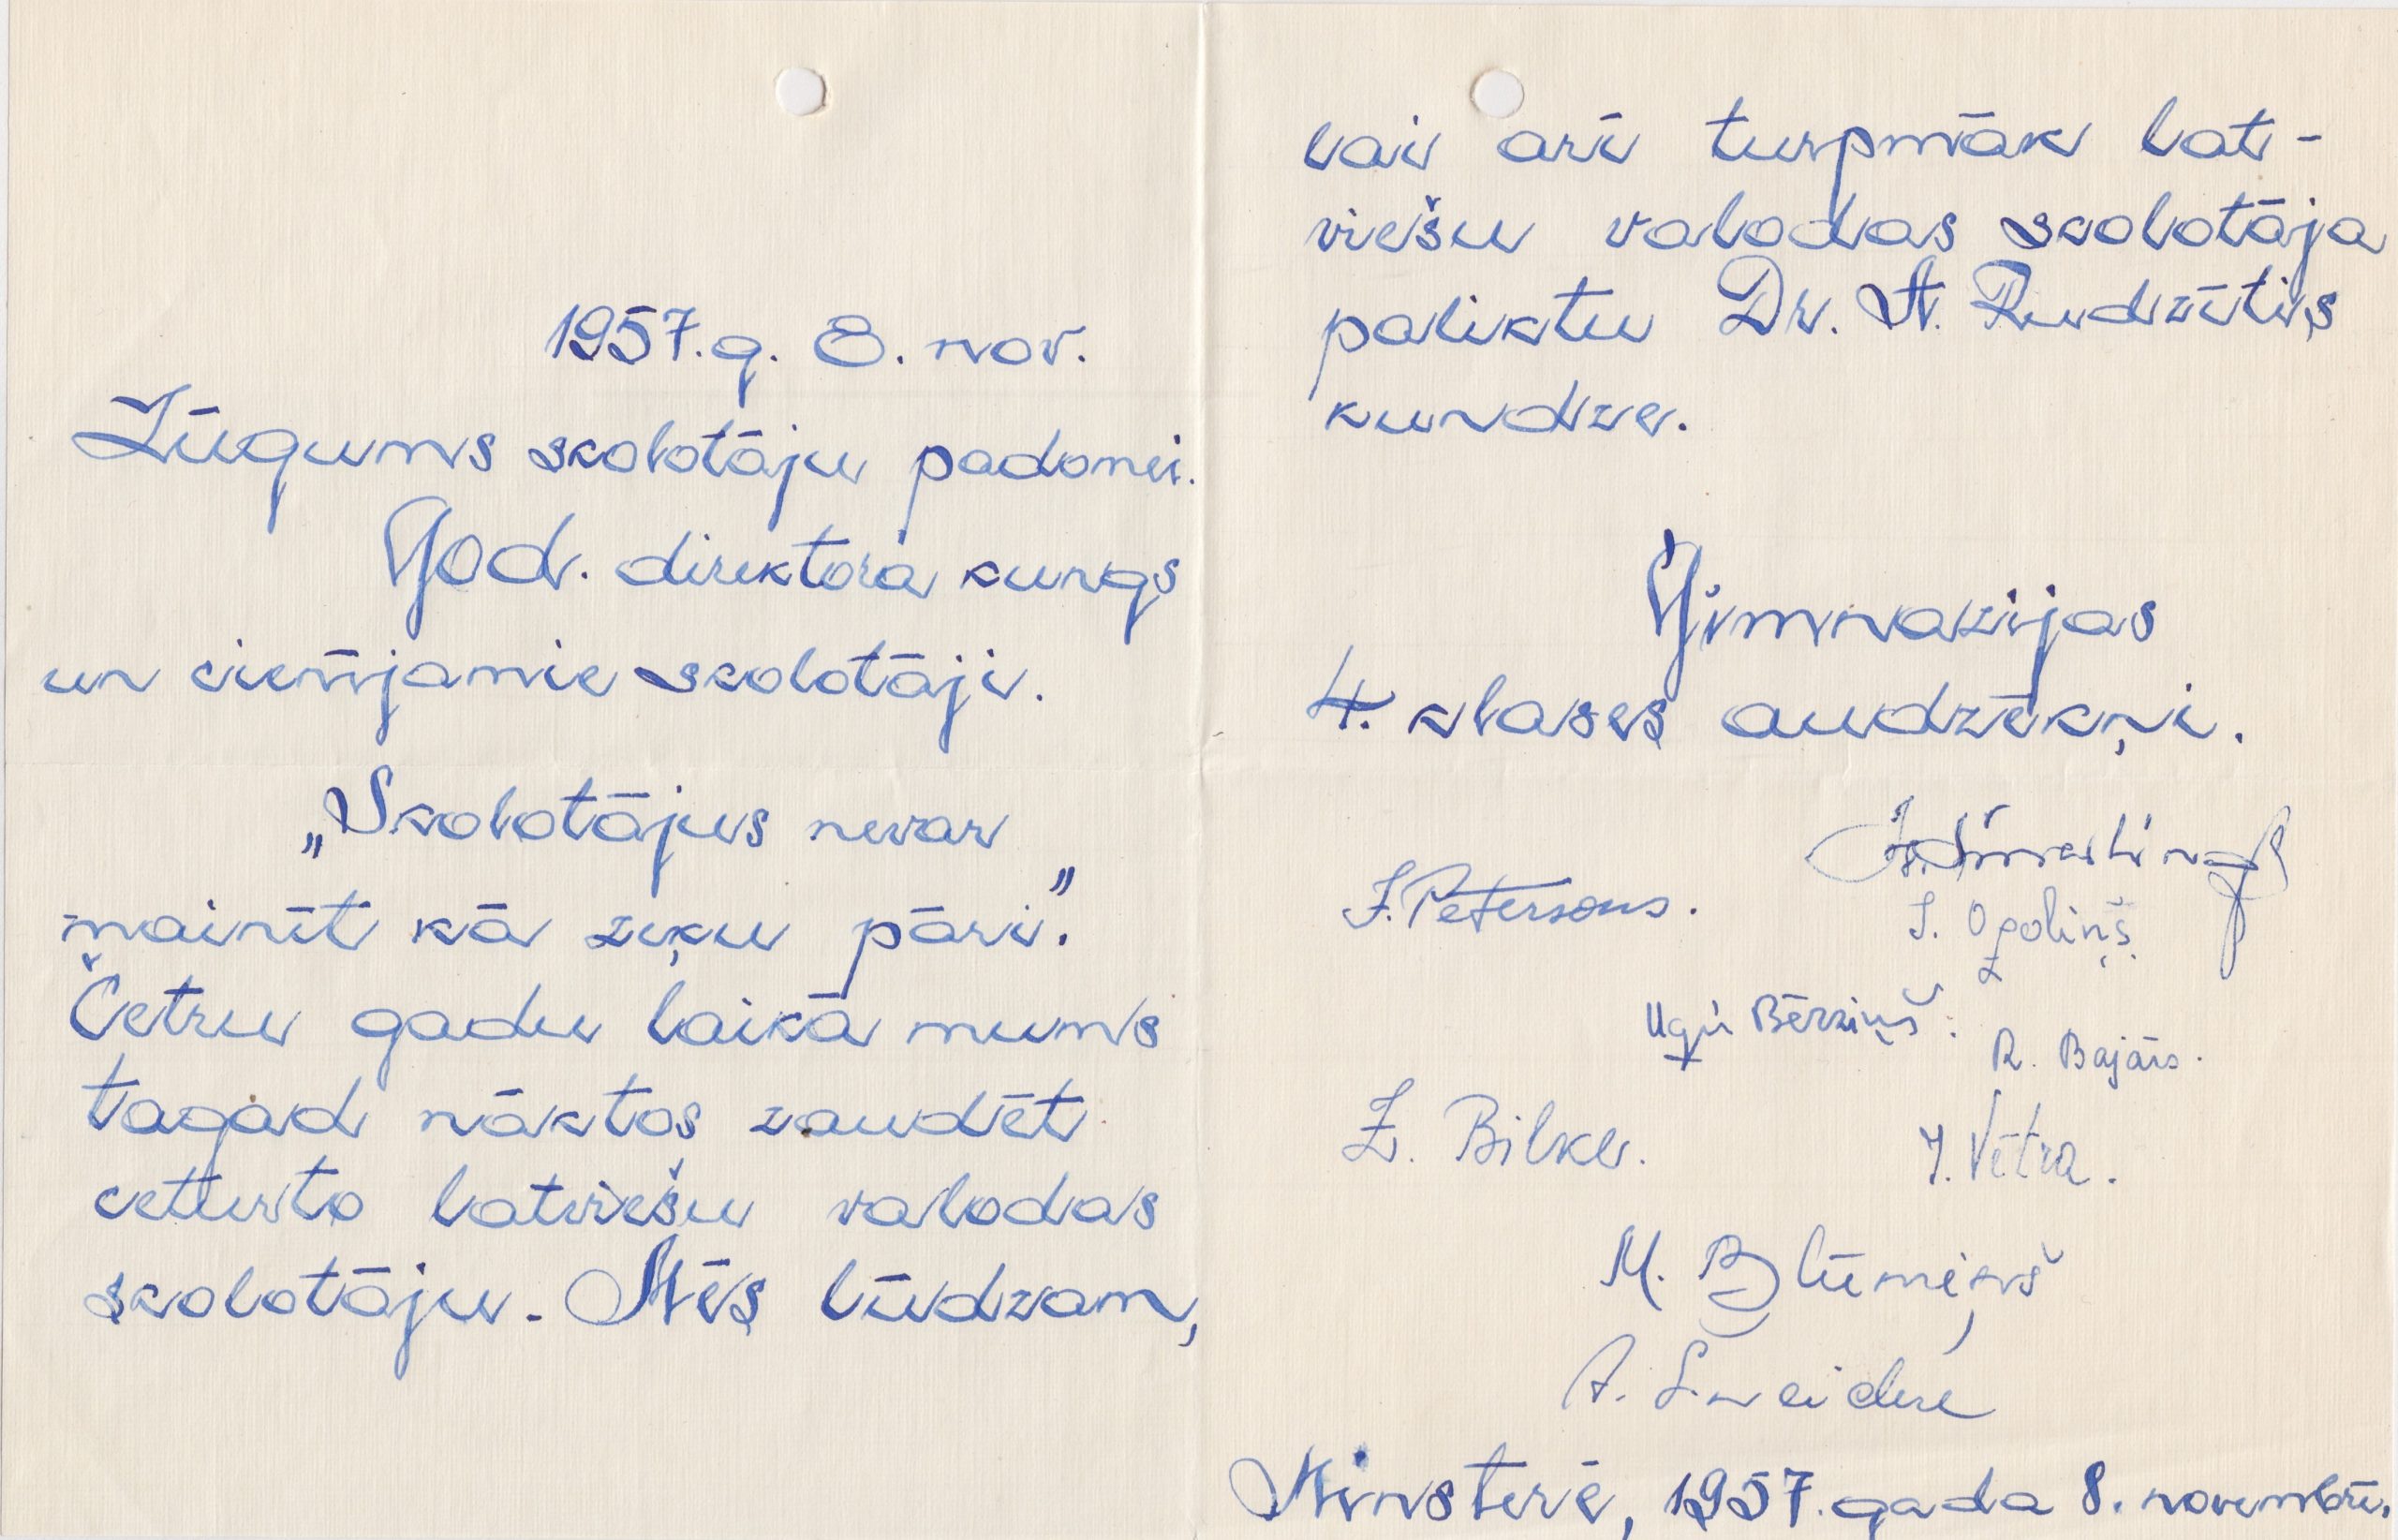 1957.g. 8. nov.
Lūgums skolotāju padomei.
God. direktora kungs
un cienījamie skolotāji.
„Skolotājus nevar
mainīt kā zeķu pāri.”
Četru gadu laikā mums
tagad nāktos zaudēt
ceturto latviešu valodas
skolotāju. Mēs lūdzam,
lai arī turpmāk lat-
viešu valodas skolotāja
paliktu Dr. A. Rudzītis
kundze.
Ģimnazijas
4. klases audzēkņi.
J. Petersons.
I. Ozoliņš.
Uģis Bērziņš.
R. Bajārs.
Z. Bilke.
J. Vētra.
M. Blūmiņš
A. Sneidere
Minsterē, 1957. gada 8. novembrī.